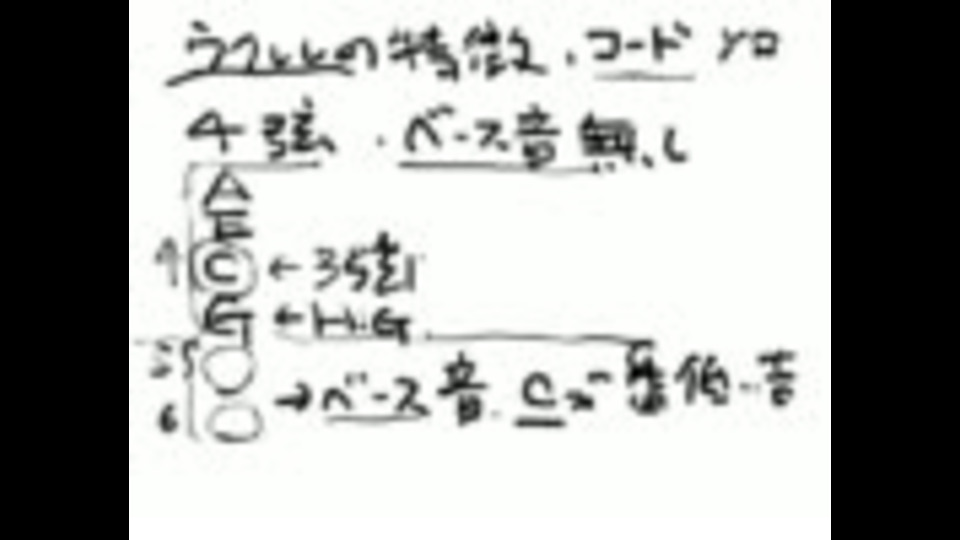 ウクレレの特徴、コード ソロ
4弦・ベース音無し
A
E
C ←3弦
G ←H.G
5
6 →ベース音 C